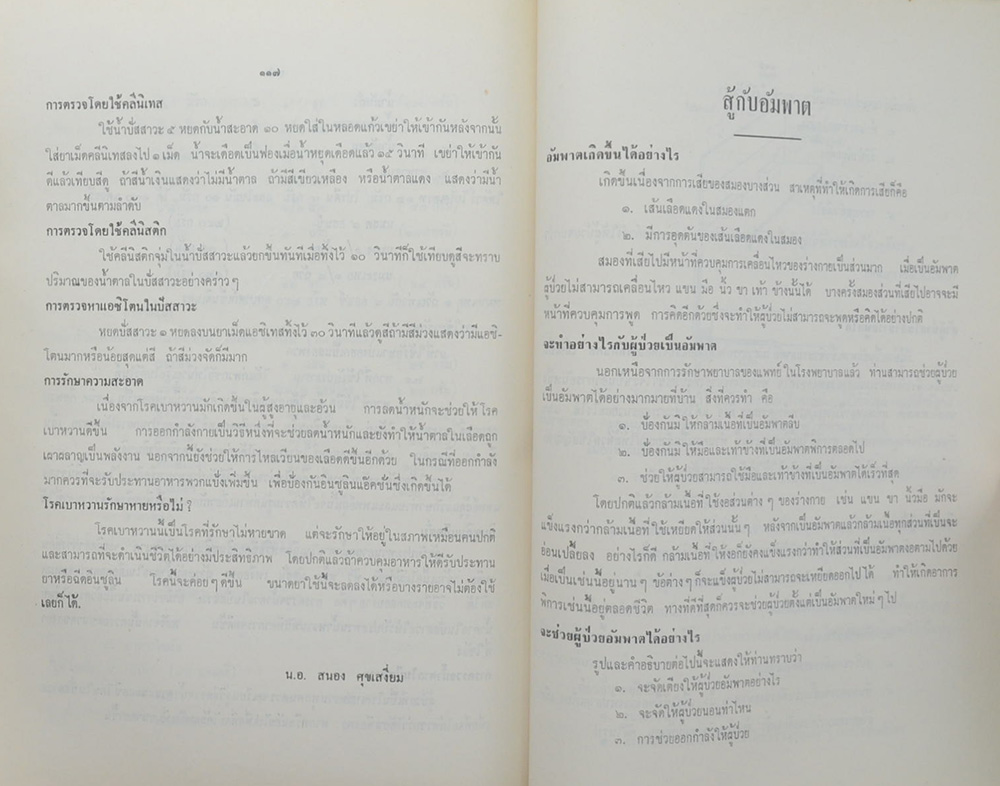 ๑๑๗
การตรวจโดยใช้คลินิเทส
ใช้น้ำปัสสาวะ ๕ หยดกับน้ำสะอาด ๑๐ หยดใส่ในหลอดแก้วเขย่าให้เข้ากันหลังจากนั้น
ใส่ยาเม็ดคลีนิเทสลงไป ๑ เม็ด น้ำจะเดือดเป็นฟองเมื่อน้ำหยุดเดือดแล้ว ๑๕ วินาที เขย่าให้เข้ากัน
ดีแล้วเทียบสีดู ถ้าสีน้ำเงินแสดงว่าไม่มีน้ำตาล ถ้ามีสีเขียวเหลือง หรือน้ำตาลแดง แสดงว่ามีน้ำ
ตาลมากขึ้นตามลำดับ
การตรวจโดยใช้คลินสติก
ใช้คลีนิสติกจุ่มในน้ำปัสสาวะแล้วยกขึ้นทันทีเมื่อทิ้งไว้ ๑๐ วินาทีก็ใช้เทียบดูสีจะทราบ
ปริมาณของน้ำตาลในปัสสาวะอย่างคร่าว ๆ
การตรวจหาแอซิโตนในปัสสาวะ
หยดปัสสาวะ ๑ หยดลงบนยาเม็ดแอซิเทสทิ้งไว้ ๓๐ วินาทีแล้วดูสีถ้ามีสีม่วงแสดงว่ามีแอซิ-
โตนมากหรือน้อยสุดแต่สี ถ้าสีม่วงจัดก็มีมาก
การรักษาความสะอาด
เนื่องจากโรคเบาหวานมักเกิดขึ้นในผู้สูงอายุและอ้วน การลดน้ำหนักจะช่วยให้โรค
เบาหวานดีขึ้น การออกกำลังกายเป็นวิธีหนึ่งที่จะช่วยลดน้ำหนักและยังทำให้น้ำตาลในเลือดถูก
เผาผลาญเป็นพลังงาน นอกจากนี้ยังช่วยให้การไหลเวียนของเลือดดีขึ้นอีกด้วย ในกรณีที่ออกกำลัง
มากควรที่จะรับประทานอาหารพวกแข็งเพิ่มขึ้น เพื่อป้องกันอินซูลินแอ๊คชั่นซึ่งเกิดขึ้นได้
โรคเบาหวานรักษาหายหรือไม่ ?
โรคเบาหวานนี้เป็นโรคที่รักษาไม่หายขาด แต่จะรักษาให้อยู่ในสภาพเหมือนคนปกติ
และสามารถที่จะดำเนินชีวิตได้อย่างมีประสิทธิภาพ โดยปกติแล้วถ้าควบคุมอาหารให้ดีรับประทาน
ยาหรือฉีดอินซูลิน โรคนี้จะค่อย ๆ ดีขึ้น ขนาดยาใช้นี้จะลดลงได้หรือบางรายอาจไม่ต้องใช้
เลยก็ได้.
น.อ. สนอง ศุขเสงี่ยม
สู้กับอัมพาต
อัมพาตเกิดขึ้นได้อย่างไร
เกิดขึ้นเนื่องจากการเสียของสมองบางส่วน สาเหตุที่ทำให้เกิดการเสียก็คือ
๑. เส้นเลือดแดงในสมองแตก
๒. มีการอุดตันของเส้นเลือดแดงในสมอง
สมองที่เสียไปมีหน้าที่ควบคุมการเคลื่อนไหวของร่างกายเป็นส่วนมาก เมื่อเป็นอัมพาต
ผู้ป่วยไม่สามารถเคลื่อนไหว แขน มือ นิ้ว ขา เท้า ข้างนั้นได้ บางครั้งสมองส่วนที่เสียไปอาจจะมี
หน้าที่ควบคุมการพูด การคิดอีกด้วยซึ่งจะทำให้ผู้ป่วยไม่สามารถจะพูดหรือคิดได้อย่างปกติ
จะทำอย่างไรกับผู้ป่วยเป็นอัมพาต
นอกเหนือจากการรักษาพยาบาลของแพทย์ ในโรงพยาบาลแล้ว ท่านสามารถช่วยผู้ป่วย
เป็นอัมพาตได้อย่างมากมายที่บ้าน สิ่งที่ควรทำ คือ
๑. ป้องกันมิให้กล้ามเนื้อที่เป็นอัมพาตลีบ
๒. ป้องกันมิให้มือและเท้าข้างที่เป็นอัมพาตพิการตลอดไป
๓. ช่วยให้ผู้ป่วยสามารถใช้มือและเท้าข้างที่เป็นอัมพาตได้เร็วที่สุด
โดยปกติแล้วกล้ามเนื้อที่ใช้งอส่วนต่าง ๆ ของร่างกาย เช่น แขน ขา นิ้วมือ มักจะ
แข็งแรงกว่ากล้ามเนื้อที่ใช้เหยียดให้ส่วนนั้น ๆ หลังจากเป็นอัมพาตแล้วกล้ามเนื้อทุกส่วนที่เป็นจะ
อ่อนเปลี้ยลง อย่างไรก็ดี กล้ามเนื้อที่ให้งอก็ยังคงแข็งแรงกว่าทำให้ส่วนที่เป็นอัมพาตงอตามไปด้วย
เมื่อเป็นเช่นนี้อยู่นาน ๆ ข้อต่าง ๆ ก็จะแข็งผู้ป่วยไม่สามารถจะเหยียดออกไปได้ ทำให้เกิดอาการ
พิการเช่นนี้อยู่ตลอดชีวิต ทางที่ดีที่สุดก็ควรจะช่วยผู้ป่วยตั้งแต่เป็นอัมพาตใหม่ ๆ ไป
จะช่วยผู้ป่วยอัมพาตได้อย่างไร
รูปและคำอธิบายต่อไปนี้จะแสดงให้ท่านทราบว่า
๑. จะจัดเตียงให้ผู้ป่วยอัมพาตอย่างไร
๒. จะจัดให้ผู้ป่วยนอนท่าไหน
๓. การช่วยออกกำลังให้ผู้ป่วย